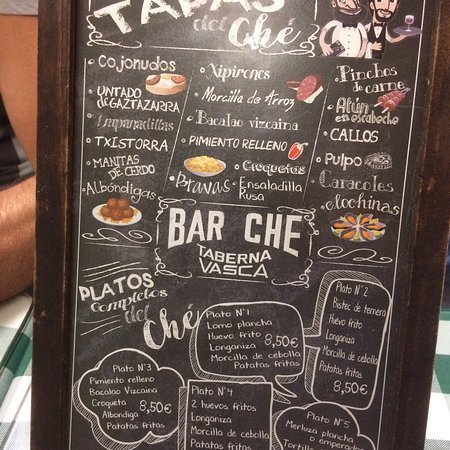 TAPAS
del Ché
Cojonudos
UNTADO
de GAZTAZARRA
Empanadillas
TXISTORRA
MANITAS
DE CERDO
Albóndigas
Xipirones
Morcilla de Arroz
Bacalao vizcaina
PIMIENTO RELLENO
Croquetas
Bravas
Ensaladilla
Rusa
Pinchos
de carne
Atún
en escabeche
CALLOS
Pulpo
Caracoles
Clochinas
BAR CHE
TABERNA
VASCA
PLATOS
Completos
del
Ché
Plato N°1
Lomo plancha
Huevo frito
Longaniza 8,50€
Morcilla de cebolla
Patatas fritas
Plato N°2
Bistec de ternera
Huevo frito
Longaniza
Morcilla de cebolla
Patatas fritas
8,50€
Plato N°3
Pimiento relleno
Bacalao Vizcaina
Croqueta
Albondiga 8,50€
Patatas fritas
Plato N°4
2 huevos fritos
Longaniza
Morcilla de cebolla
Patatas fritas
Plato N°5
Merluza plancha
o emperador